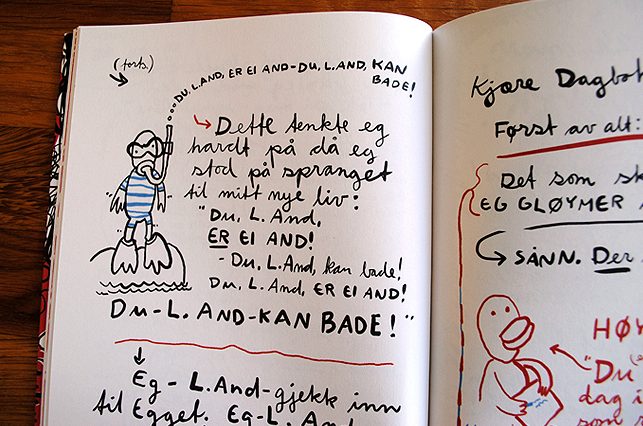 (forts.)
DU, L. AND, ER EI AND-DU, L. AND, KAN
BADE!
Dette tenkte eg
hardt på då eg
stod på spranget
til mitt nye liv:
"Du, L. And,
ER EI AND!
- Du, L. And, kan bade!
Du, L. And, ER EI AND!
Du-L. AND-KAN BADE!"
Eg - L. And - gjekk inn
til Egget. Eg - L. And
Kjære Dagbok
Først av alt:
Det som sk
EG GLØYMER
SÅNN. Der
HØY
"Du
dag i
som